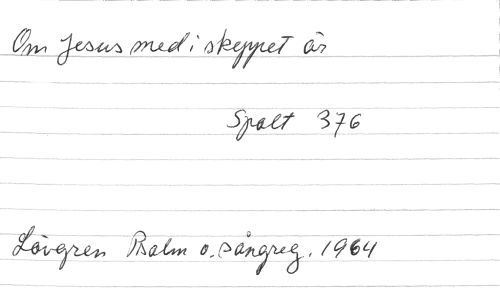 Om Jesus med i skeppet är
Spalt 376
Lövgren Psalm o. sångreg. 1964